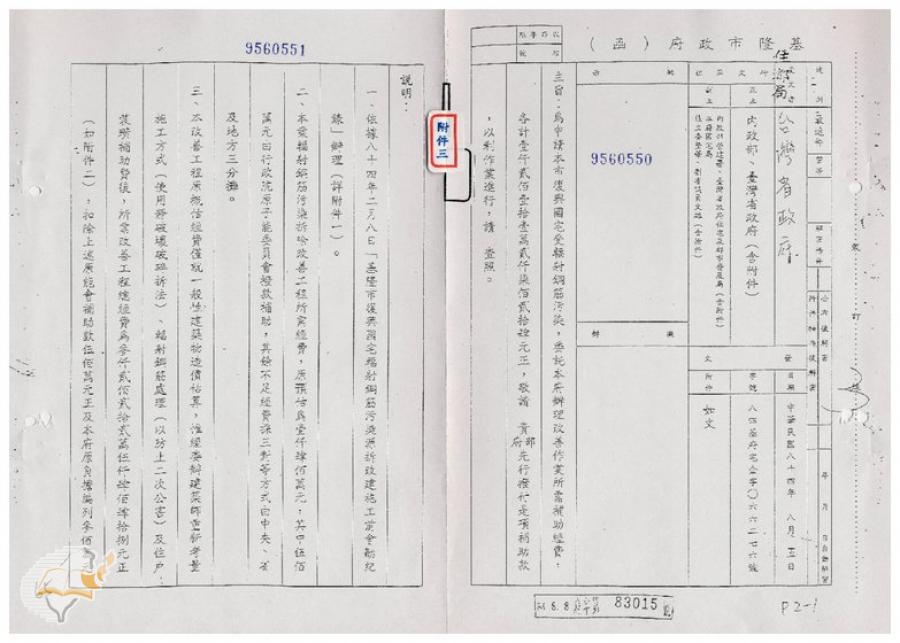 基隆市政府（函）
住都局
台灣省政府
最速件
內政部、臺灣省政府（含附件）
中華民國八十四年八月五日
八四基府宅企字〇六六二七六號
如文
批示
擬辦
9560550
主旨：為申請本市復興國宅受輻射鋼筋污染，委託本府辦理改善作業所需補助經費：
各計壹仟貳佰壹拾壹萬貳仟柒佰貳拾肆元正，敬請 貴部府先行撥付是項補助款
，以利作業進行，請 查照。
附件三
9560551
說明：
一、依據八十四年二月八日「基隆市復興國宅輻射鋼筋污染源拆改建施工前會勘紀
錄」辦理（詳附件一）。
二、本案輻射鋼筋污染拆除改善工程所需經費，原預估為壹仟肆佰萬元，其中伍佰
萬元由行政院原子能委員會撥款補助，其餘不足經費採三對等方式由中央、省
及地方三分攤。
三、本改善工程原概估經費僅就一般性建築物造價估算，惟經委辦建築師重新考量
施工方式（使用靜破壞破碎拆法）、輻射鋼筋處理（以防止二次公害）及住戶
裝璜補助費後，所需改善工程總經費為參仟貳佰貳拾貳萬伍仟肆佰肆拾捌元正
（如附件二），扣除上述原能會補助款伍佰萬元正及本府原負擔編列參佰
84.8.8
83015
P2-1